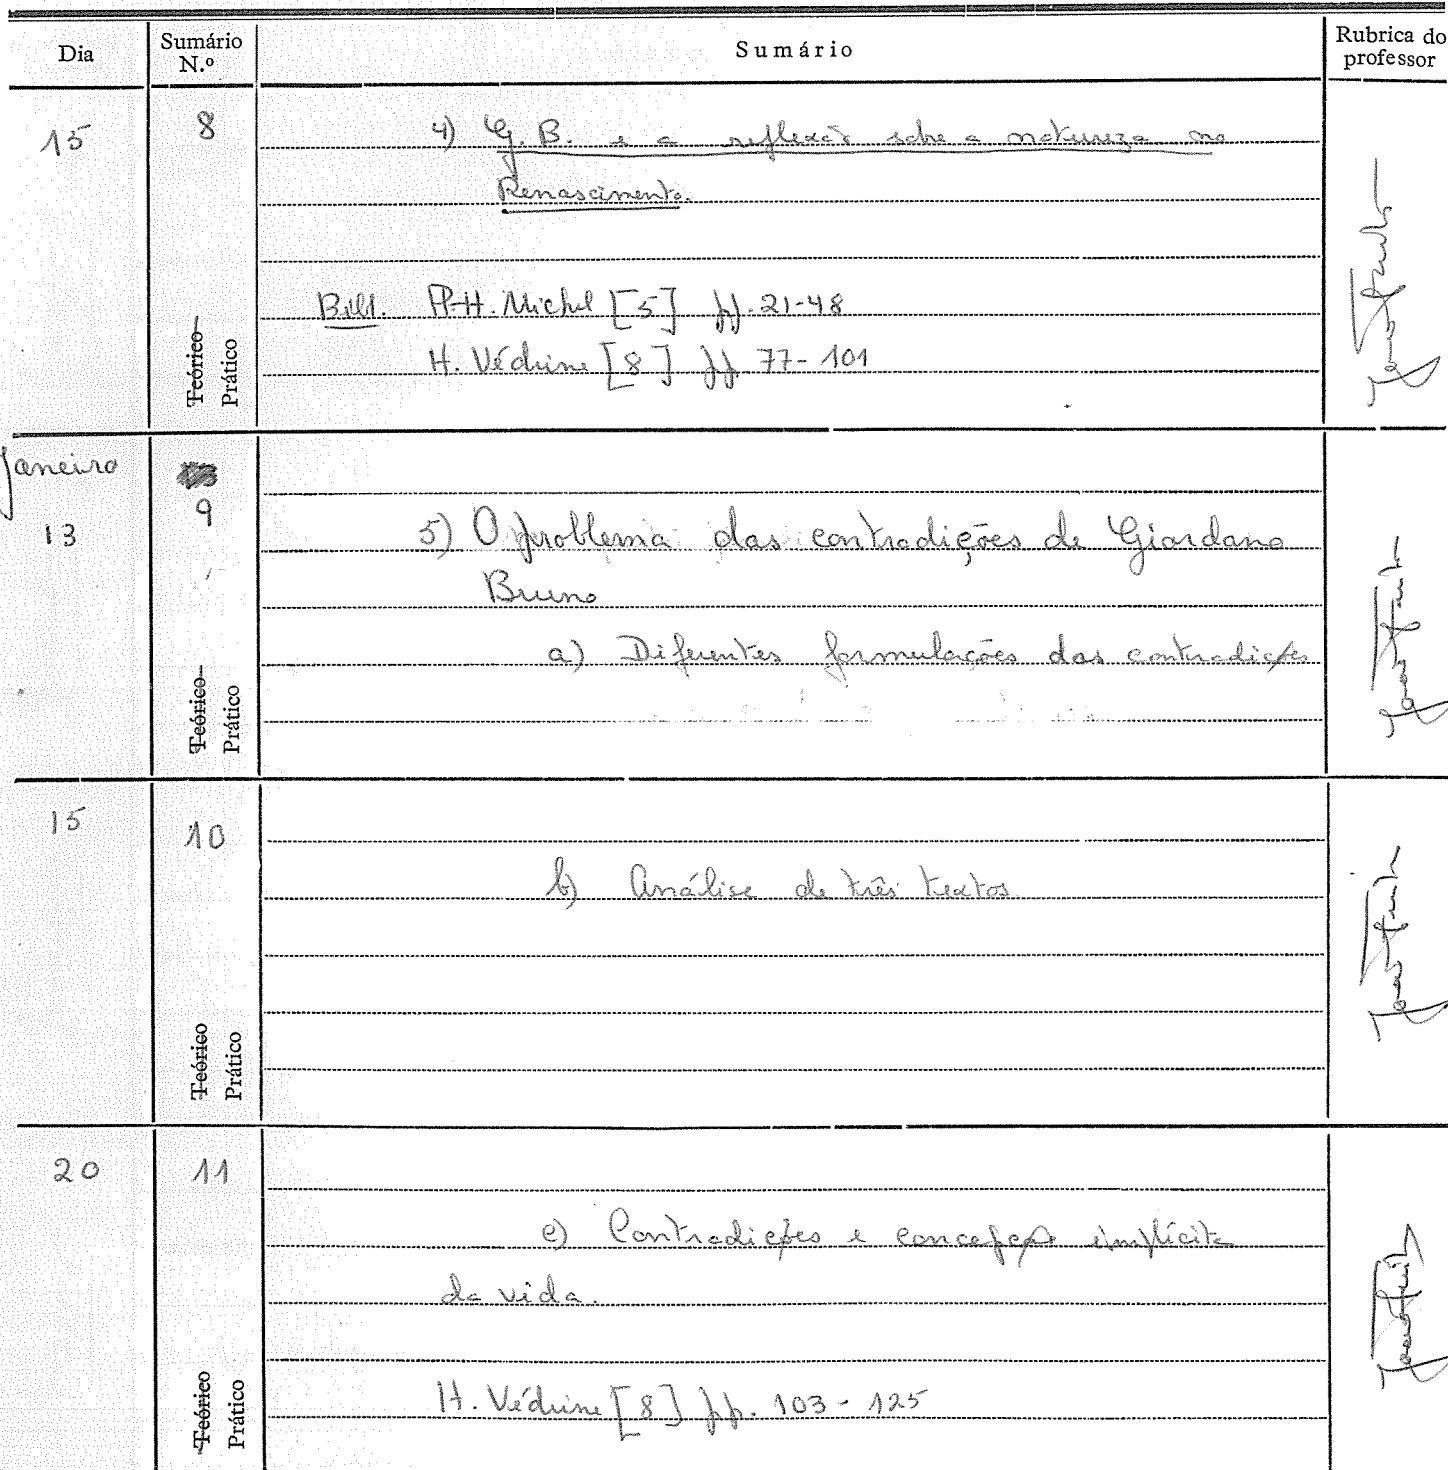 Dia
Sumário
N.º
Sumário
Rubrica do
professor
15
8
4) G. B. e a reflexão sobre a natureza no
Renascimento.
Bibl. P-H. Michel [5] pp. 21-48
H. Védrine [8] pp. 77-101
Teórico
Prático
Janeiro
13
9
5) O problema das contradições de Giordano
Bruno
a) Diferentes formulações das contradições
Teórico
Prático
15
10
b) Análise de três textos.
Teórico
Prático
20
11
c) Contradições e concepção implícita
da vida.
H. Védrine [8] pp. 103-125
Teórico
Prático